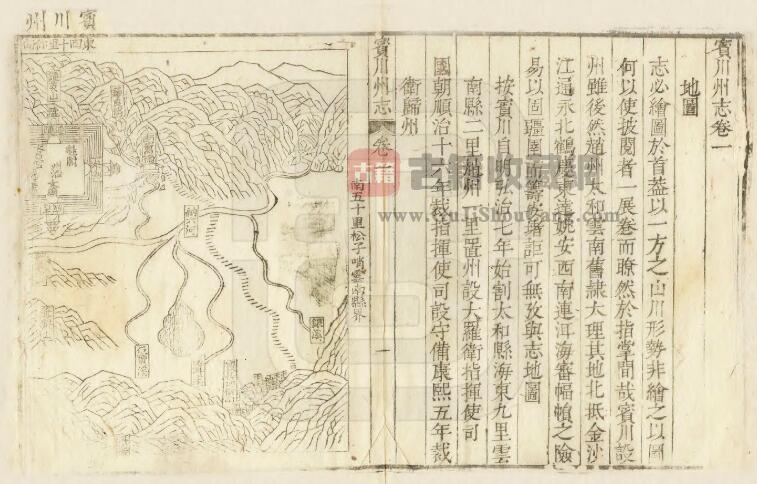 賓川州志卷一
地圖
志必繪圖於首葢以一方之山川形勢非繪之以圖
何以使披閱者一展卷而瞭然於指掌間哉賓川設
州雖後然趙州太和雲南舊隸大理其地北抵金沙
江逼永北鶴慶東達姚安西南連洱海審幅幀之險
易以固疆圉而籌安
詎可無攷與志地圖
按賓川自明弘治七年始割太和縣海東九里雲
南縣二里趙州一里置州設大羅衛指揮使司
國朝順治十六年裁指揮使司設守備康熙五年裁
衛歸州
賓川州志
卷一
一
南五十里松子哨雲南縣界
賓川州
古籍收藏网
www.GujiShouCang.com